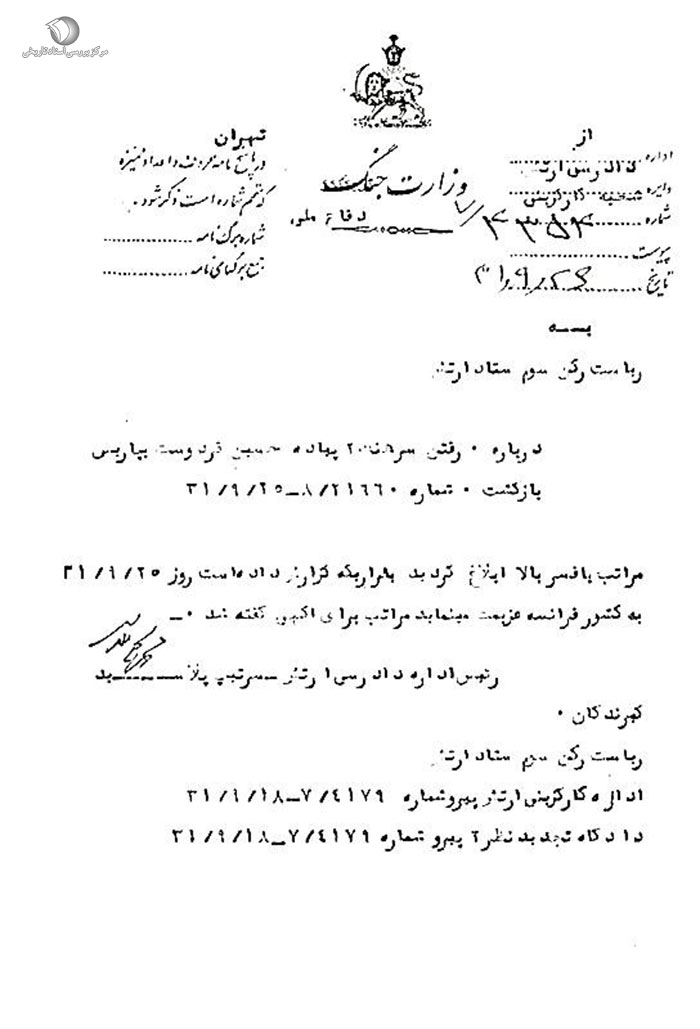 مرکز بررسی اسناد تاریخی
از
اداره دادرسی ارتش
دایره شعبه کارگزینی
شماره ۷/۴۳۵۴
پیوست
تاریخ
وزارت جنگ
دفاع ملی
تهران
در پاسخ نامه
که تمم شماره است ذکر شود.
شماره برگ نامه
جمع برگهای نامه
به
ریاست رکن سوم ستاد ارتش
درباره ۰ رفتن سرهنگ ۲ پیاده حسین فردوست بپاریس
بازگشت ۰ شماره ۸/۲۱۶۶۰ـ۳۱/۹/۲۵
مراتب بافسر بالا ابلاغ گردید بطوریکه گزارش داده است روز ۳۱/۹/۲۵
به کشور فرانسه عزیمت مینماید مراتب برای آگهی گفته شد ۰ـ
رئیس اداره دادرسی ارتش ـ سرتیپ
گیرندگان ۰
ریاست رکن سوم ستاد ارتش
اداره کارگزینی ارتش پیرو شماره ۷/۴۱۷۹ـ۳۱/۹/۱۸
دادگاه تجدید نظر ۲ پیرو شماره ۷/۴۱۷۹ـ۳۱/۹/۱۸